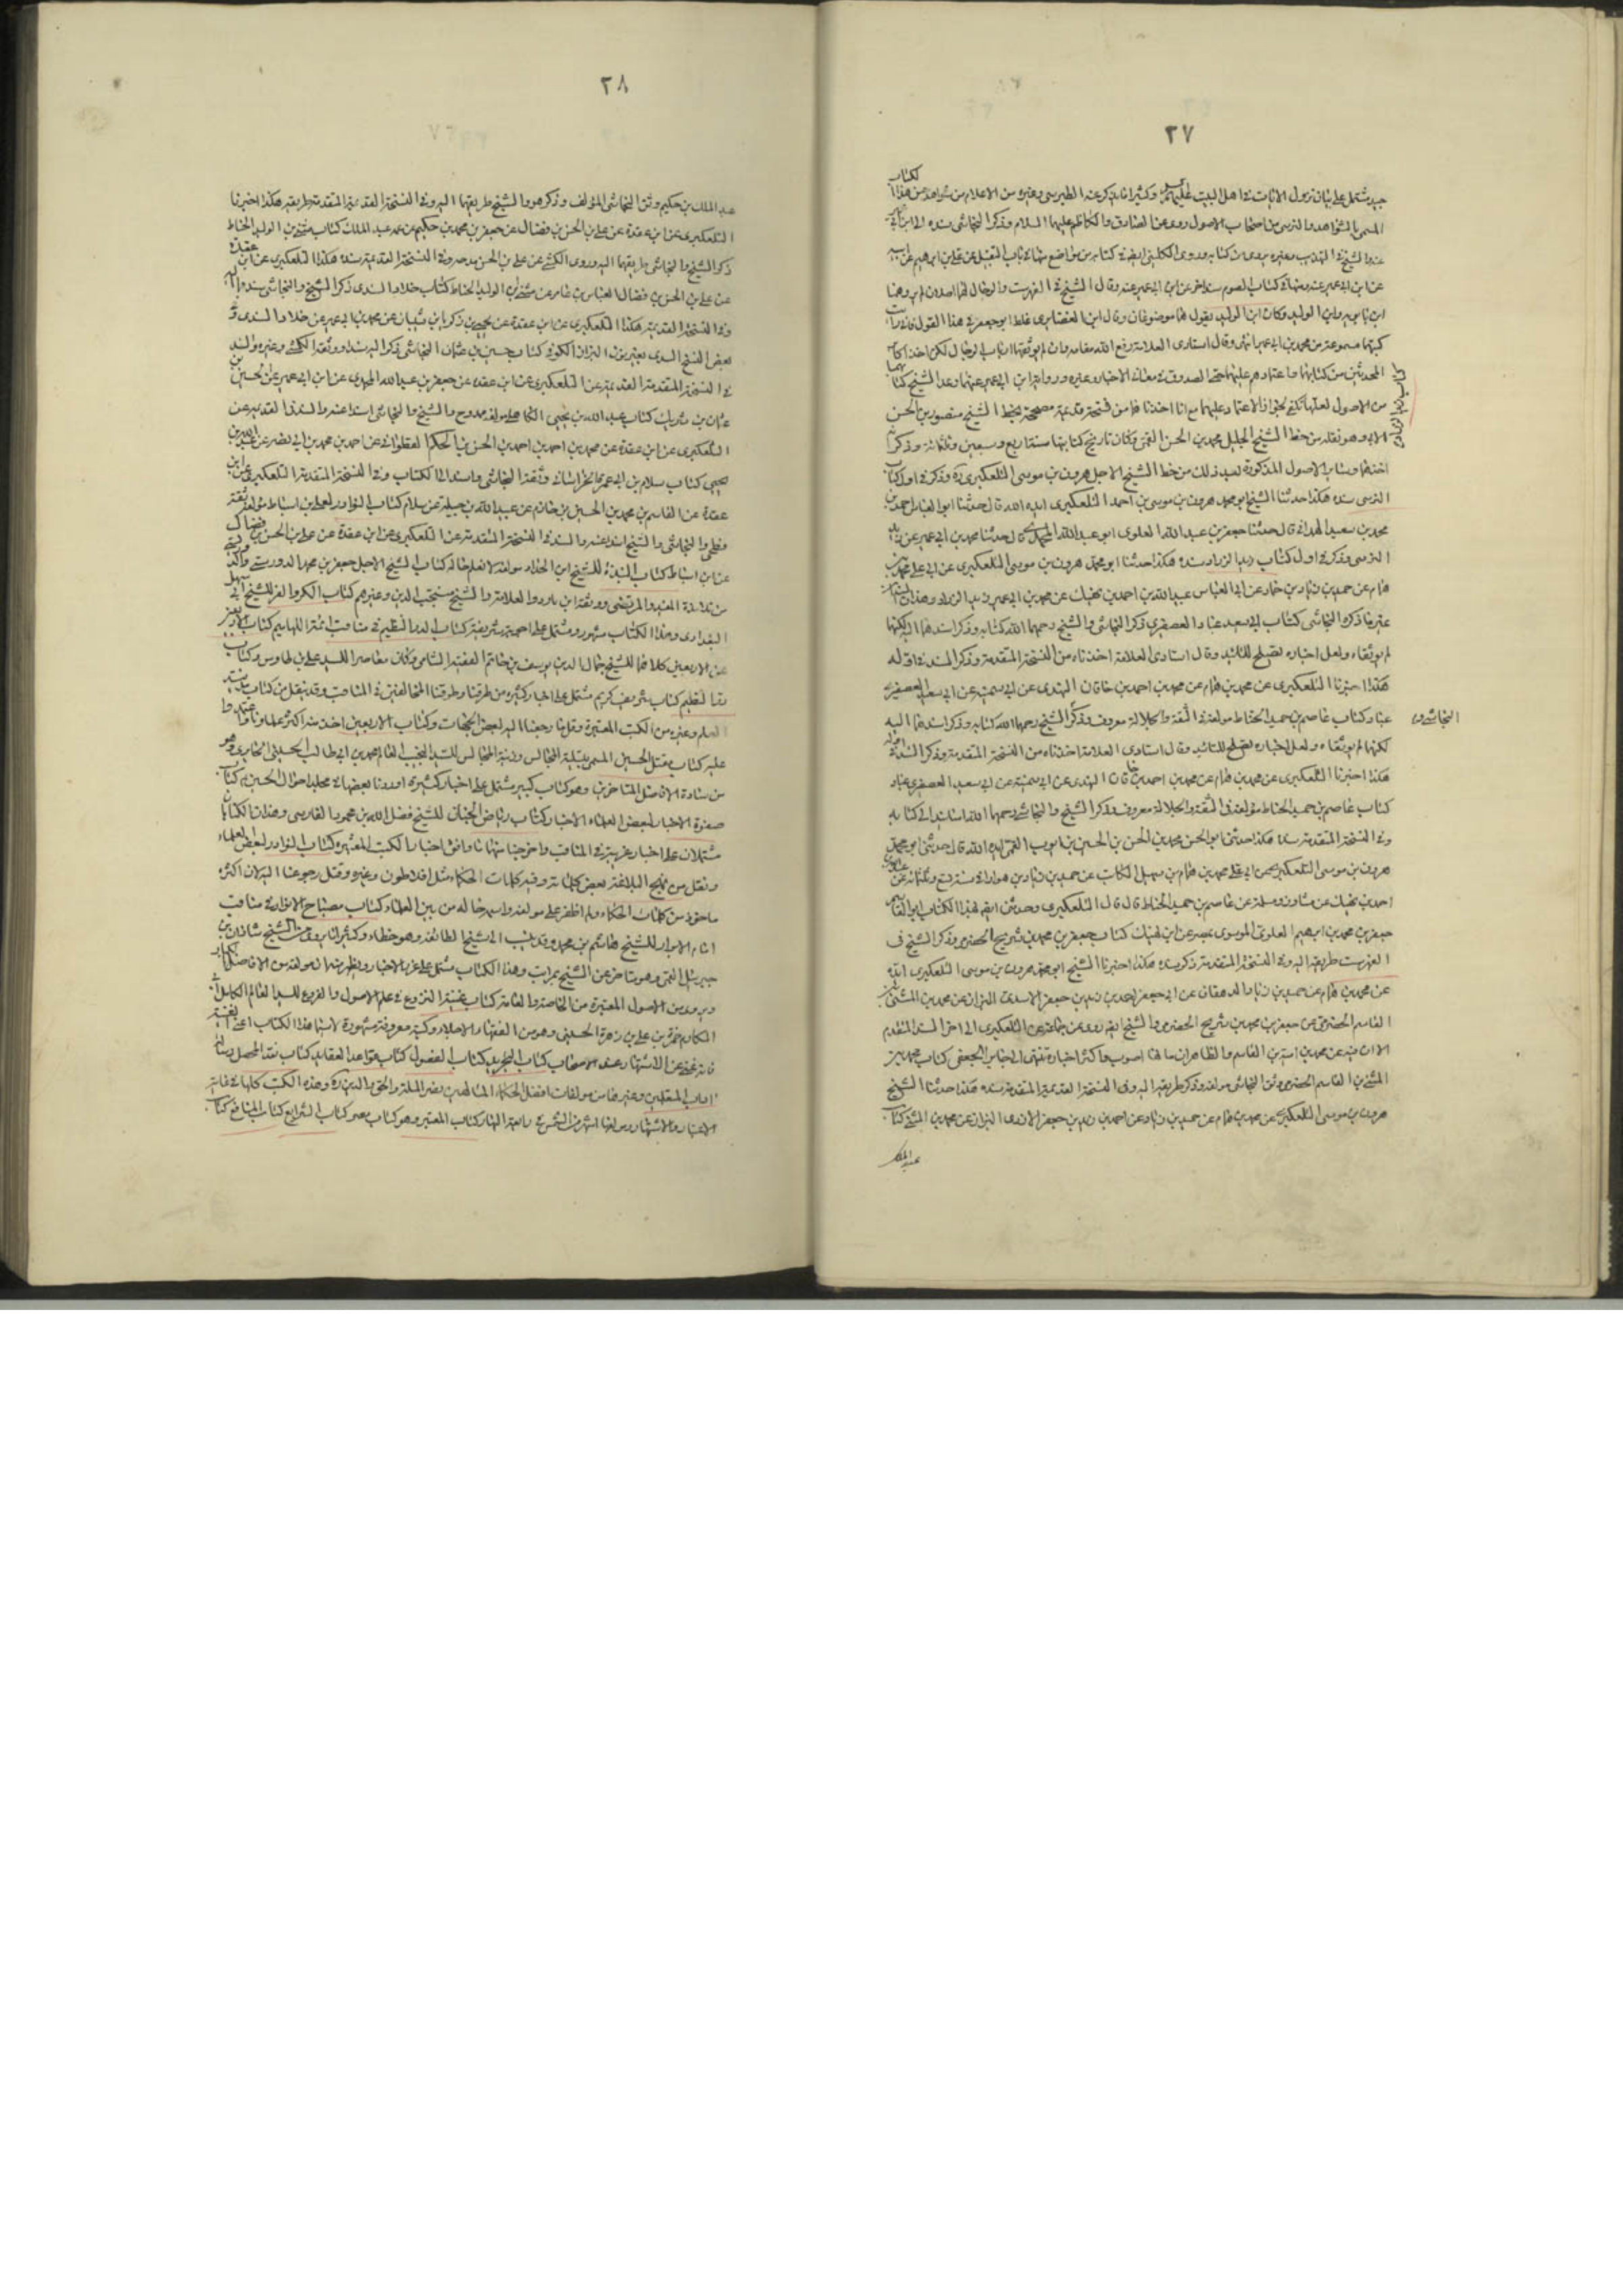 ٢٧
لكتاب
جيد مشتمل على بيان نزول الآيات في اهل البيت عليهم وكثيرا ما يذكر عنه الطبرسي وغيره من الاعلام من شواهد من هذا
المسمى بالشواهد والنرسي من اصحاب الاصول روى عن الصادق والكاظم عليهما السلام وذكر النجاشي سنده الى ابن ابي
عن ابن ابي عمير عنه وقال الشيخ في الفهرست والرجال لهما اصلان لم يروهما
ابن بابويه وابن الوليد وكان ابن الوليد يقول هما موضوعان وقال ابن الغضايري غلط ابو جعفر في هذا القول فاني رايت
كتبهما مسموعة من محمد بن ابي عمير انتهى وقال استادي العلامة رفع الله مقامه وان لم يوثقهما ارباب الرجال لكن اخذ اكابر
المحدثين من كتابهما واعتمادهم عليهما حتى الصدوق في معاني الاخبار وغيره ورواية ابن ابي عمير عنهما وعد الشيخ كتابهما
من الاصول لعلها تكفي لجواز الاعتماد عليهما مع انا اخذناهما من نسخة قديمة مصححة بخط الشيخ منصور بن الحسن
الابي وهو نقله من خط الشيخ الجليل محمد بن الحسن القمي وكان تاريخ كتابتها سنة اربع وسبعين وثلثمائة وذكر انه
اخذهما وساير الاصول المذكورة بعد ذلك من خط الشيخ الاجل هرون بن موسى التلعكبري ره وذكر في اول كتاب
النرسي سنده هكذا حدثنا الشيخ ابو محمد هرون بن موسى بن احمد التلعكبري ايده الله قال حدثنا ابو العباس احمد بن
محمد بن سعيد الهمداني قال حدثنا جعفر بن عبد الله العلوي ابو عبد الله المحمدي قال حدثنا محمد بن ابي عمير عن زيد
النرسي وذكر في اول كتاب زيد الزراد سنده هكذا حدثنا ابو محمد هرون بن موسى التلعكبري عن ابي علي محمد بن
همام عن حميد بن زياد بن حماد عن ابي العباس عبيد الله بن احمد بن نهيك عن محمد بن ابي عمير عن زيد الزراد وهذان السندان
غير ما ذكره النجاشي كتاب ابي سعيد عباد العصفري ذكر النجاشي والشيخ رحمهما الله كتابه وذكرا سندهما اليه لكنهما
لم يوثقاه ولعل اخباره تصلح للتائيد وقال استادي العلامة اخذناه من النسخة المتقدمة وذكر السند في اوله
هكذا اخبرنا التلعكبري عن محمد بن همام عن محمد بن احمد بن خاقان النهدي عن ابي سمينة عن ابي سعيد العصفري
عباد كتاب عاصم بن حميد الحناط مؤلفه في الثقة والجلالة معروف وذكر الشيخ رحمهما الله كتابه وذكرا سندهما اليه
النجاشي و
لكنهما لم يوثقاه ولعل اخباره تصلح للتائيد وقال استادي العلامة اخذناه من النسخة المتقدمة وذكر السند في اوله
هكذا اخبرنا التلعكبري عن محمد بن همام عن محمد بن احمد بن خاقان النهدي عن ابي سمينة عن ابي سعيد العصفري عباد
كتاب عاصم بن حميد الحناط مؤلفه في الثقة والجلالة معروف وذكر الشيخ والنجاشي رحمهما الله اسانيد الى كتابه
وفي النسخة المتقدمة سنده هكذا حدثني ابو الحسن محمد بن الحسن بن الحسين بن ايوب القمي ايده الله قال حدثني ابو محمد
هرون بن موسى التلعكبري عن ابي علي محمد بن همام بن سهيل الكاتب عن حميد بن زياد بن هوارا في سنة تسع وثلثمائة عن
احمد بن نهيك عن مساور وسلمة عن عاصم بن حميد الحناط قال قال التلعكبري وحدثني ايضا بهذا الكتاب ابو القاسم
جعفر بن محمد بن ابراهيم العلوي الموسوي بمصر عن ابن نهيك كتاب جعفر بن محمد بن شريح الحضرمي وذكر الشيخ في
الفهرست طريقه اليه وفي النسخة المتقدمة ذكر سنده هكذا اخبرنا الشيخ ابو محمد هرون بن موسى التلعكبري ايده
عن محمد بن همام عن حميد بن زياد الدهقان عن ابي جعفر احمد بن زيد بن جعفر الاسدي البزاز عن محمد بن المثنى بن
القاسم الحضرمي عن جعفر بن محمد بن شريح الحضرمي والشيخ ايضا روى عن جماعة عن التلعكبري الى اخر السند المتقدم
الا ان فيه عن محمد بن امية بن القاسم والظاهر ان ما هنا اصوب واكثر اخباره تنتهي الى جابر الجعفي كتاب محمد بن
المثنى بن القاسم الحضرمي وثق النجاشي مؤلفه وذكر طريقه اليه وفي النسخة القديمة المتقدمة سنده هكذا حدثنا الشيخ
هرون بن موسى التلعكبري عن محمد بن همام عن حميد بن زياد عن احمد بن زيد بن جعفر الازدي البزاز عن محمد بن المثنى كتاب
عبد الملك
٢٨
عبد الملك بن حكيم وثق النجاشي المؤلف وذكر هو والشيخ طريقهما اليه وفي النسخة القديمة المتقدمة طريقه هكذا اخبرنا
التلعكبري عن ابن عقدة عن علي بن الحسن بن فضال عن جعفر بن محمد بن حكيم عن عمه عبد الملك كتاب مثنى بن الوليد الحناط
ذكر الشيخ والنجاشي طريقهما اليه وروى الكشي عن علي بن الحسن مدحه وفي النسخة القديمة سنده هكذا التلعكبري عن ابن عقدة
عن علي بن الحسن بن فضال العباس بن عامر عن مثنى بن الوليد الحناط كتاب خلاد السندي ذكر الشيخ والنجاشي سندهما اليه
وفي النسخة القديمة هكذا التلعكبري عن ابن عقدة عن يحيى بن زكريا بن شيبان عن محمد بن ابي عمير عن خلاد السندي وفي
بعض النسخ السدي بغير نون البزاز الكوفي كتاب حسين بن عثمان النجاشي ذكر اليه سندا ووثقه الكشي وغيره والسند
في النسخة المتقدمة القديمة عن التلعكبري عن ابن عقدة عن جعفر بن عبد الله المحمدي عن ابن ابي عمير عن الحسين بن
عثمان بن شريك كتاب عبد الله بن يحيى الكاهلي مؤلفه ممدوح والشيخ والنجاشي اسندا عنه والسند القديم عن
التلعكبري عن ابن عقدة عن محمد بن احمد بن احمد بن الحسن بن الحكم القطواني عن احمد بن محمد بن ابي نصر عن عبد الله بن
يحيى كتاب سلام بن ابي عمرة الخراساني وثقه النجاشي واسند الى الكتاب وفي النسخة المتقدمة التلعكبري عن ابن
عقدة عن القاسم بن محمد بن الحسين بن حازم عن عبد الله بن جبلة عن سلام كتاب النوادر لعلي بن اسباط مؤلفه ثقة
فطحي والنجاشي والشيخ اسندا عنه والسند في النسخة المتقدمة عن التلعكبري عن ابن عقدة عن علي بن الحسن بن فضال
عن ابن اسباط كتاب النبذة للشيخ ابن الحداد مولفه لا نعلم حاله كتاب الشيخ الاجل جعفر بن محمد الدوريستي واكثر
من تلامذة المفيد والمرتضى ووثقه ابن داود والعلامة والشيخ منتجب الدين وغيرهم كتاب الكر والفر للشيخ ابي سهل
البغدادي وهذا الكتاب مشهور ومشتمل على اجوبة شريفة كتاب الدر النظيم في مناقب الائمة اللهاميم كتاب الاربعين
عن الاربعين كلاهما للشيخ جمال الدين يوسف بن حاتم الفقيه الشامي وكان معاصرا للسيد علي بن طاوس وكتاب
الدر النظيم كتاب شريف كريم مشتمل على اخبار كثيرة من طرقنا وطرقنا المخالفين في المناقب وقد ينقل من كتاب مدينة
العلم وغيره من الكتب المعتبرة وقل ما رجعنا اليه لبعض الجهات وكتاب الاربعين اخذ منه اكثر علماءنا واعتمدوا
عليه كتاب مقتل الحسين المسمى بتسلية المجالس وزينة المجالس للسيد النجيب العالم محمد بن ابي طالب الحسيني الحايري وهو
من سادة الافاضل المتاخرين وهو كتاب كبير مشتمل على اخبار كثيرة اوردنا بعضها في مجلد احوال الحسين كتاب
صفوة الاخبار لبعض العلماء الاخيار كتاب رياض الجنان للشيخ فضل الله بن محمود الفارسي وهذان الكتابان
مشتملان على اخبار غريبة في المناقب واخرجنا منهما ما وافق اخبار الكتب المعتبرة كتاب النوادر لبعض العلماء
ونقل من نهج البلاغة بعض كلماته وفيه كلمات الحكماء مثل افلاطون وغيره وقل رجوعنا اليه لان اكثره
ماخوذ من كلمات الحكماء ولم اظفر على مولفه واسمه حاله من بين العلماء كتاب مصباح الانوار في مناقب
امام الابرار للشيخ هاشم بن محمد وقد ينسب الى شيخ الطائفة وهو خطاء وكثيرا ما يروى عن الشيخ شاذان بن
جبرئيل القمي وهو متاخر عن الشيخ بمراتب وهذا الكتاب مشتمل على غرر الاخبار ويظهر منه ان مولفه من الافاضل الكبار
ويروى من الاصول المعتبرة من الخاصة والعامة كتاب غنية النزوع في علم الاصول والفروع للسيد العالم الكامل ابي
المكارم حمزة بن علي بن زهرة الحسيني وهو من الفقهاء الاجلاء وكتبه معروفة مشهورة لا سيما هذا الكتاب اعني الغنية
فانه غني عن الاشتهار عند الاصحاب كتاب التجريد كتاب الفصول كتاب قواعد العقايد كتاب نقد المحصل
اداب المتعلمين وغيرها من مولفات افضل الحكماء المتالهين نصير الملة والحق والدين ره وهذه الكتب كلها في غاية
الاعتبار والاشتهار ومولفها اشهر من الشمس في رابعة النهار كتاب المعتبر وهو كتاب معتبر كتاب الشرايع كتاب النافع كتاب